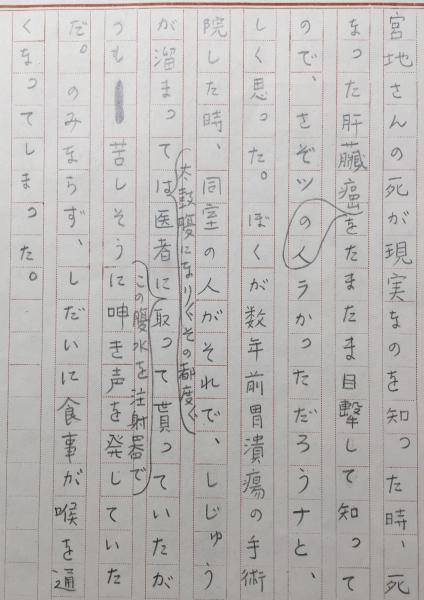 宮地さんの死が現実なのを知った時、死
なった肝臓癌をたまたま目撃して知って
ので、さぞツの人ラかっただろうナと、
しく思った。ぼくが数年前胃潰瘍の手術
院した時、同室の人がそれで、しじゅう
太鼓腹になりその都度
が溜まっては医者に取って貰っていたが
この腹水を注射器で
つも苦しそうに呻き声を発していた
だ。のみならず、しだいに食事が喉を通
くなってしまった。